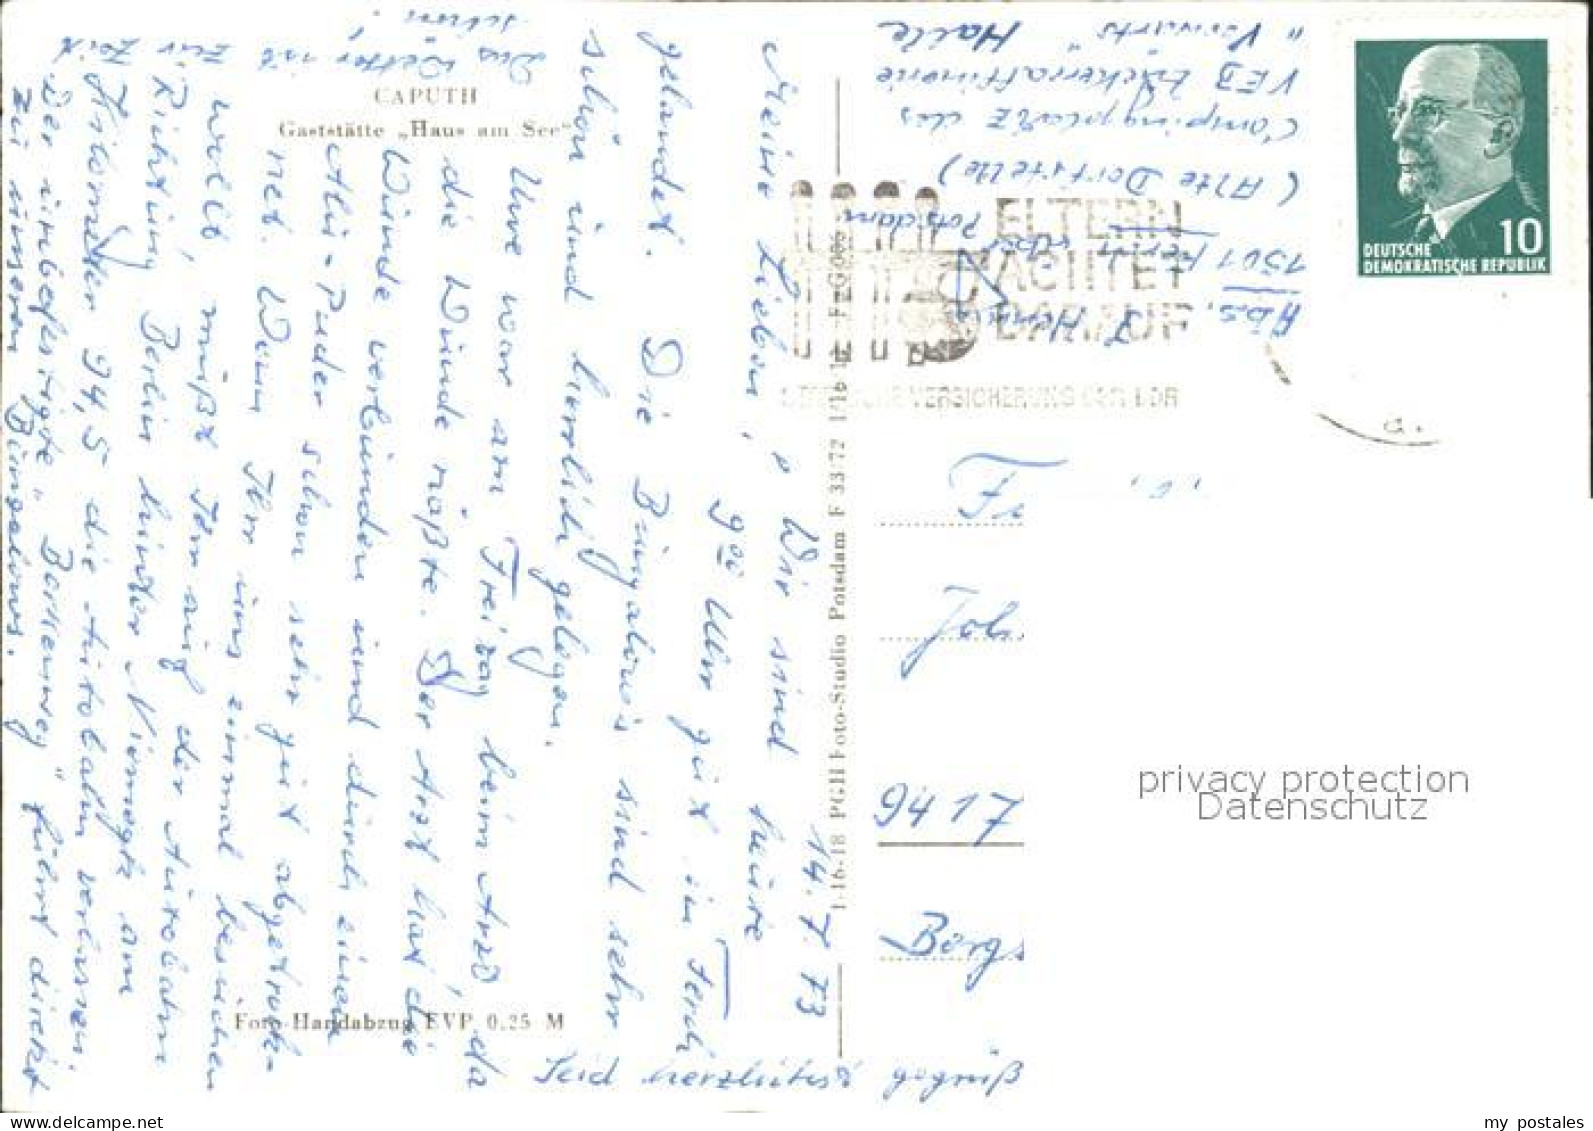 CAPUTH
Gaststätte „Haus am See"
14.7.73
Meine Lieben,
Wir sind heute
9 00 Uhr gut in Ferch
gelandet. Die Bungalows sind sehr
schön und herrlich gelegen.
Uwe war am Freitag beim Arzt, da
die Wunde näßte. Der Arzt hat die
Wunde verbunden und durch einen
Puder schon sehr gut abgetrock-
net. Wenn Ihr uns einmal besuchen
wollt, müßt Ihr auf der Autobahn
Richtung Berlin hinter Niemegk am
Kilometer 94,5 die Autobahn verlassen.
Der unbefestigte „Bartenweg" führt direkt
zu unseren Bungalows.
Zur Zeit
Das Wetter ist
schön.
Seid herzlichst gegrüß
Foto-Handabzug EVP 0.25 M
1-16-18 PGH Foto-Studio Potsdam F 33/72 1/16/12 FzG006
Abs.
1501 Ferch über Potsdam
(Alte Dorfstelle)
Campingplatz des
VEB Zuckerraffinerie
"Vorwärts" Halle
ELTERN
ACHTET
DARAUF
VERSICHERUNG DER DDR
10
DEUTSCHE
DEMOKRATISCHE REPUBLIK
Fr
Joh
9417
Bergs
privacy protection
Datenschutz
my postales